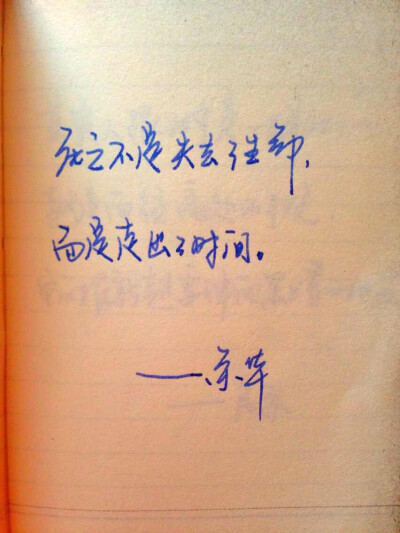 死亡不是失去了生命,
而是走出了时间。
——余华